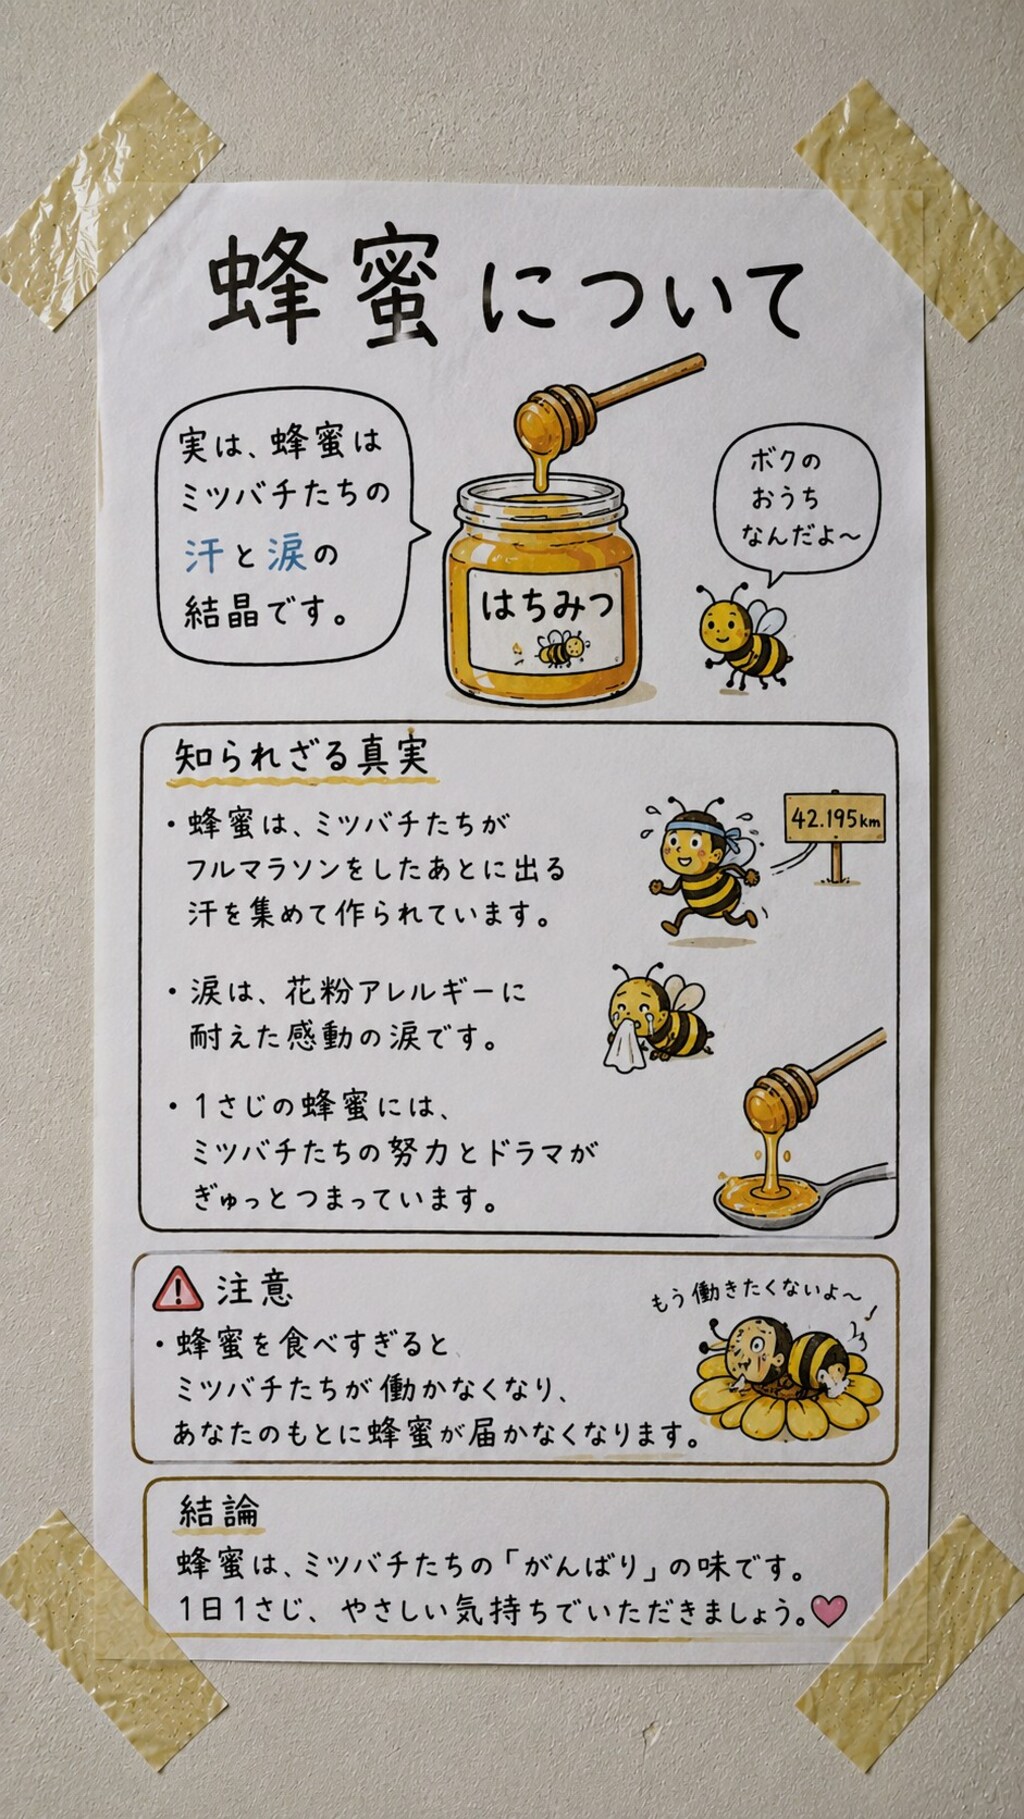 蜂蜜について
実は、蜂蜜は
ミツバチたちの
汗と涙の
結晶です。
はちみつ
ボクの
おうち
なんだよ〜
知られざる真実
・蜂蜜は、ミツバチたちが
フルマラソンをしたあとに出る
汗を集めて作られています。
42.195km
・涙は、花粉アレルギーに
耐えた感動の涙です。
・1さじの蜂蜜には、
ミツバチたちの努力とドラマが
ぎゅっとつまっています。
注意
・蜂蜜を食べすぎると
ミツバチたちが働かなくなり、
あなたのもとに蜂蜜が届かなくなります。
もう働きたくないよ〜
結論
蜂蜜は、ミツバチたちの「がんばり」の味です。
1日1さじ、やさしい気持ちでいただきましょう。